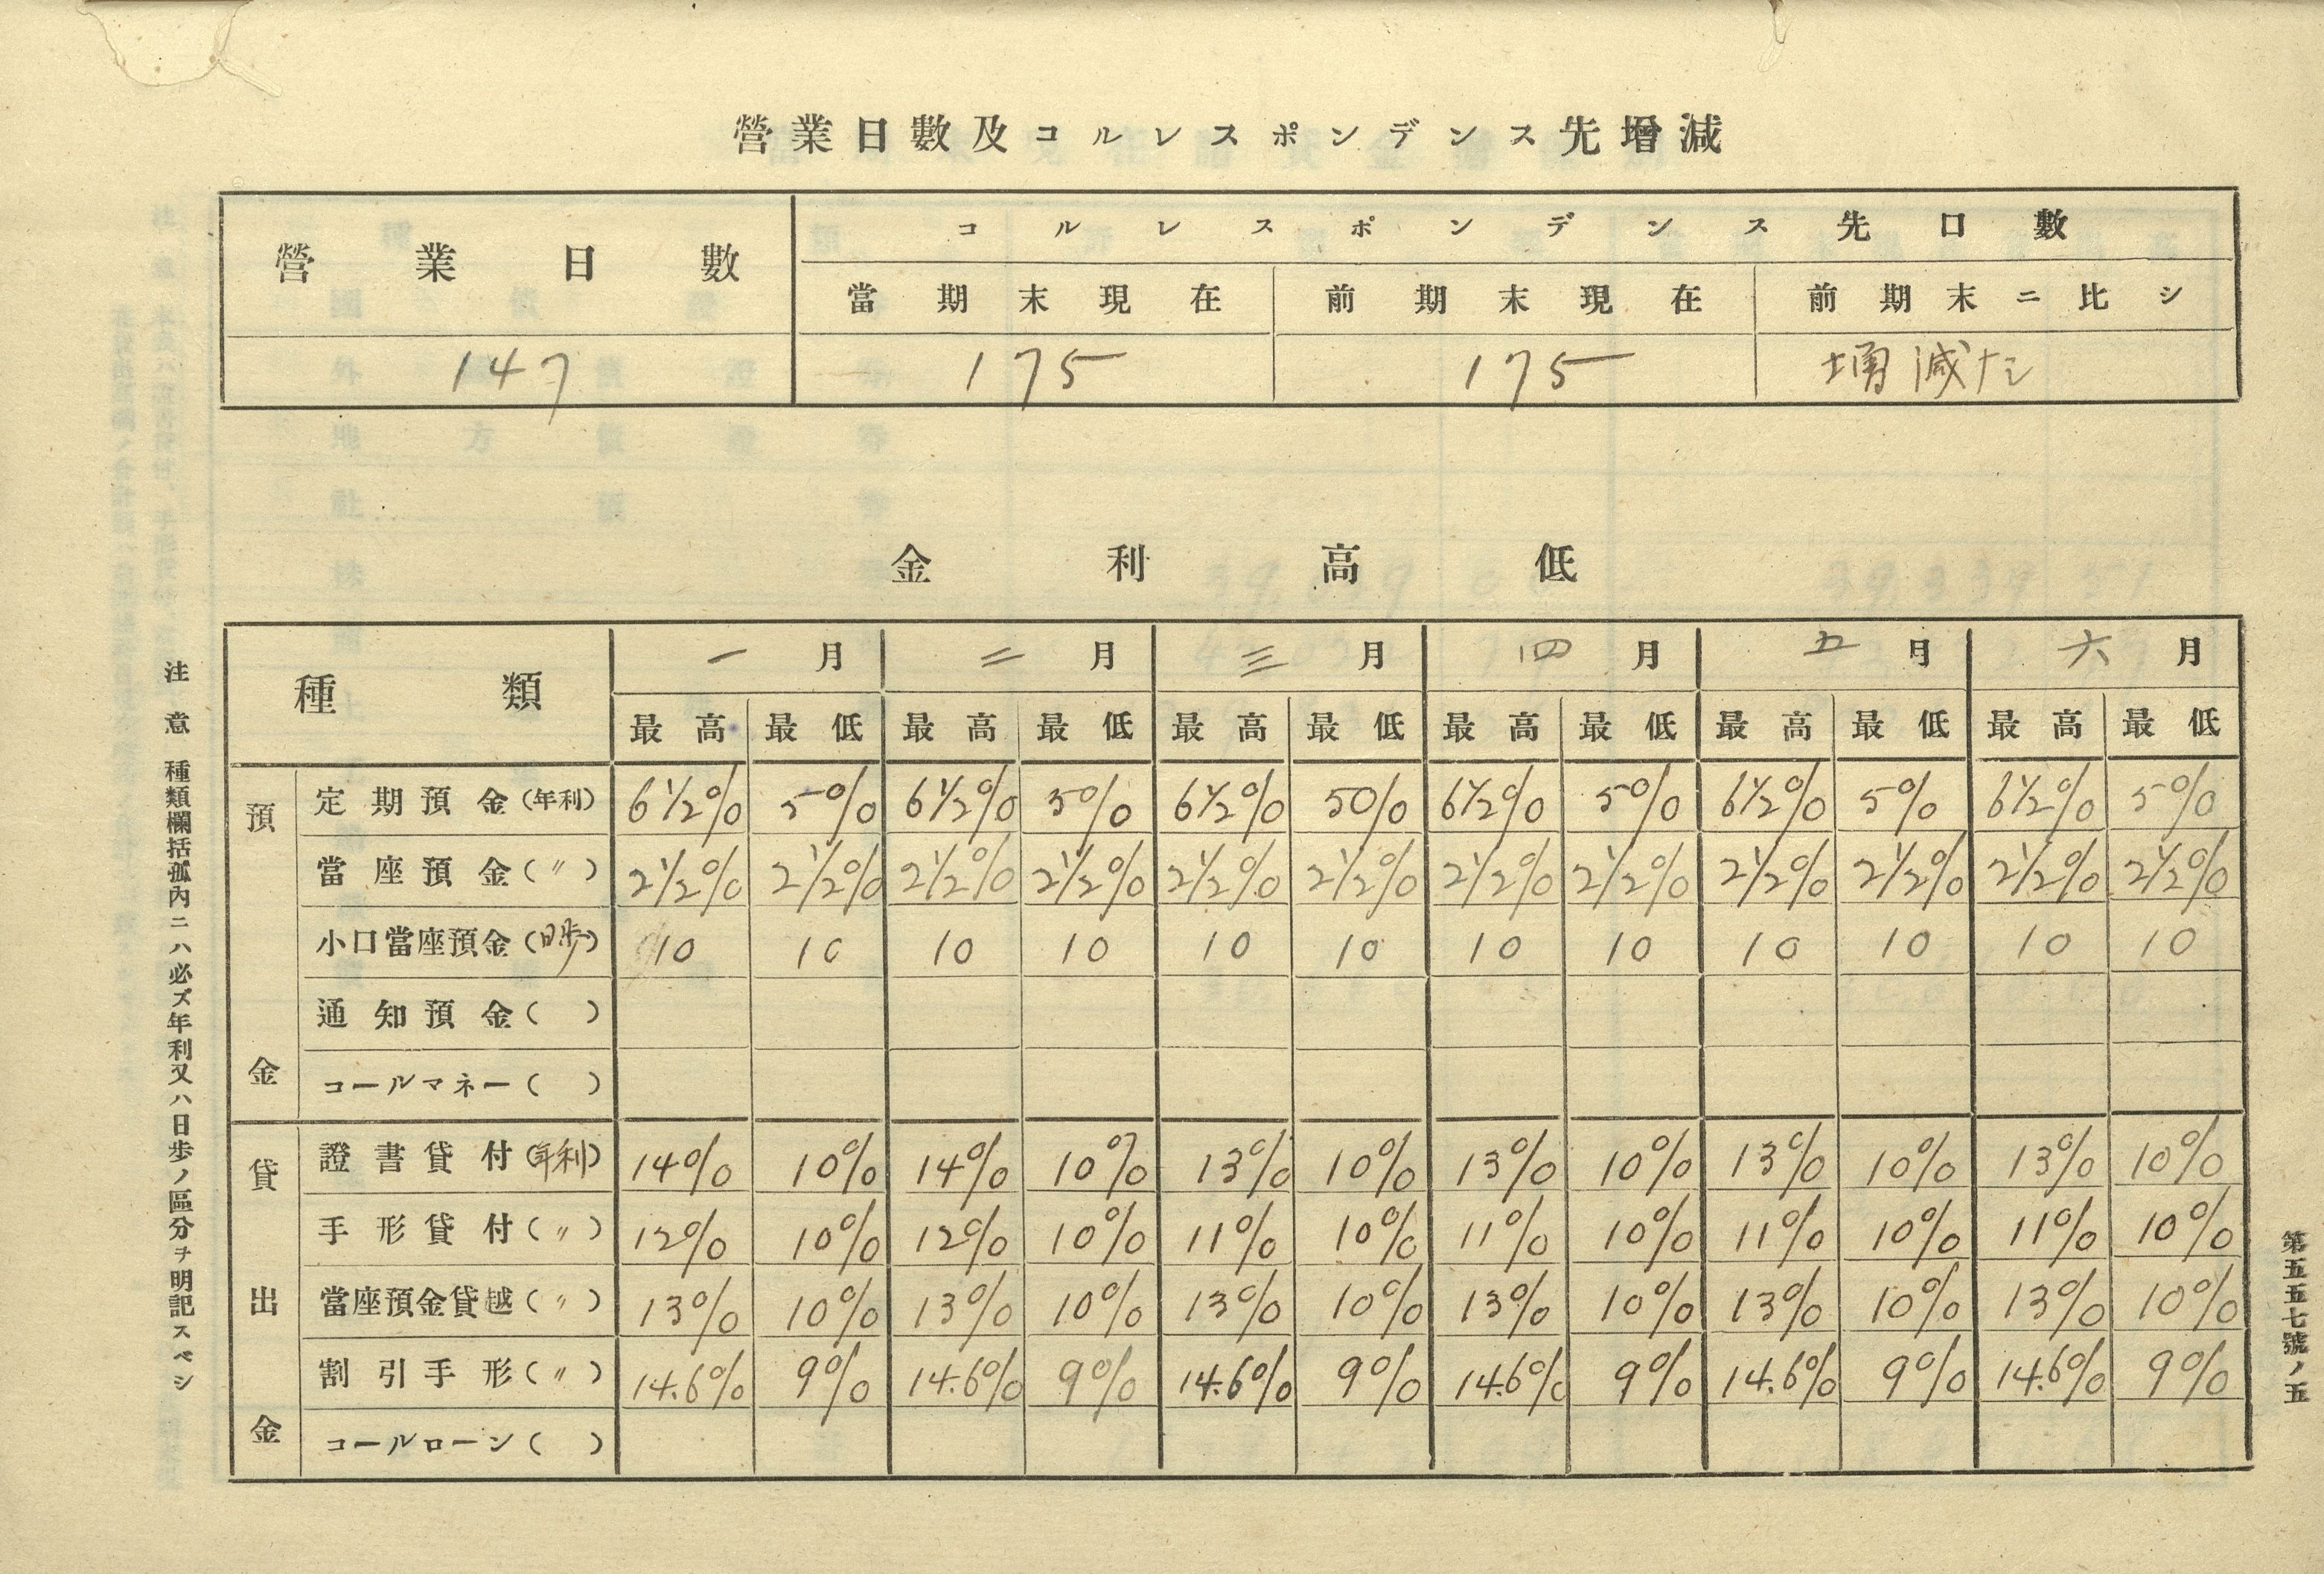 營業日數及コルレスポンデンス先增減
營業日數 コルレスポンデンス先口數
當期末現在 前期末現在 前期末ニ比シ
147 175 175 増減ナシ
金利高低
種類 一月 二月 三月 四月 五月 六月
最高 最低 最高 最低 最高 最低 最高 最低 最高 最低 最高 最低
預金
定期預金(年利) 6½% 5% 6½% 5% 6½% 5% 6½% 5% 6½% 5% 6½% 5%
當座預金(〃) 2½% 2½% 2½% 2½% 2½% 2½% 2½% 2½% 2½% 2½% 2½% 2½%
小口當座預金(日歩) 10 10 10 10 10 10 10 10 10 10 10 10
通知預金( )
コールマネー( )
貸出金
證書貸付(年利) 14% 10% 14% 10% 13% 10% 13% 10% 13% 10% 13% 10%
手形貸付(〃) 12% 10% 12% 10% 11% 10% 11% 10% 11% 10% 11% 10%
當座預金貸越(〃) 13% 10% 13% 10% 13% 10% 13% 10% 13% 10% 13% 10%
割引手形(〃) 14.6% 9% 14.6% 9% 14.6% 9% 14.6% 9% 14.6% 9% 14.6% 9%
コールローン( )
注意 種類欄括弧內ニハ必ズ年利又ハ日歩ノ區分ヲ明記スベシ
第五五七號ノ五